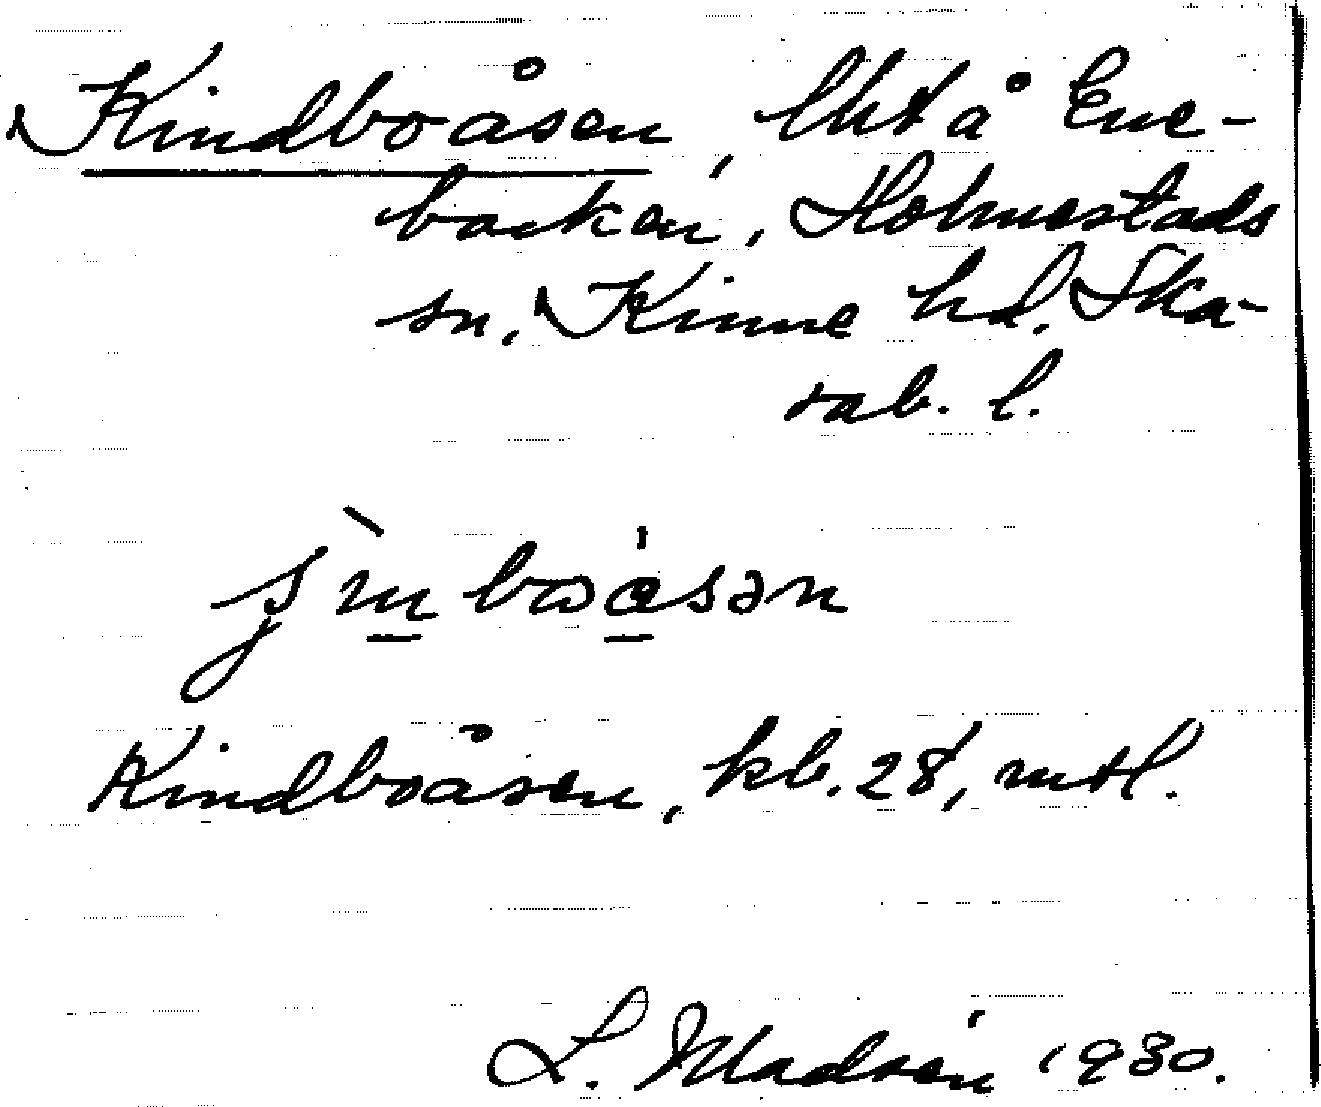 Kindboåsen, lht å Ene-
backen, Holmestads
sn, Kinne hd. Ska-
rab. l.
Kindboåsen, kb. 28, mtl.
L. Madsén 1930.